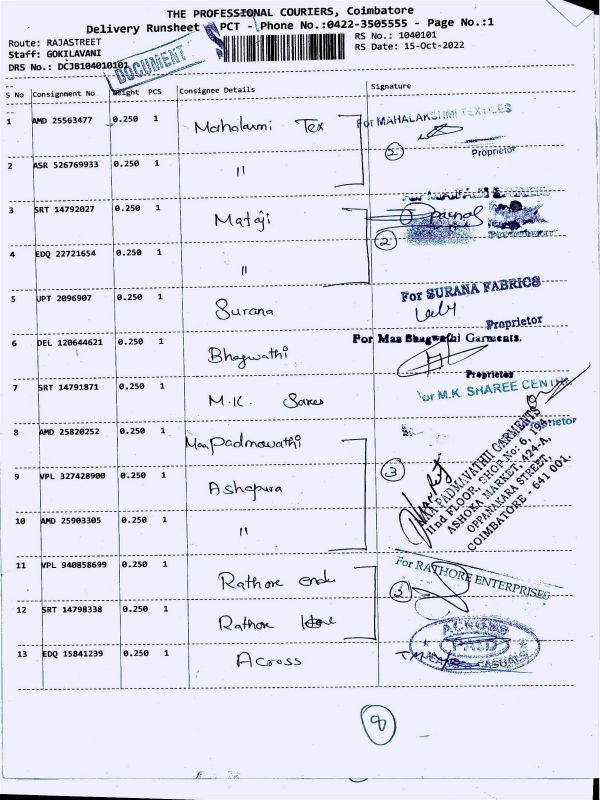 THE PROFESSIONAL COURIERS, Coimbatore
Delivery Runsheet PCT - Phone No.:0422-3505555 - Page No.:1
Route: RAJASTREET
RS No.: 1040101
Staff: GOKILAVANI
RS Date: 15-Oct-2022
DRS No.: DCJB104010101
DOCUMENT
S No Consignment No Weight PCS Consignee Details Signature
1 AMD 25563477 0.250 1 Mahalaxmi Tex
For MAHALAKSHMI TEXTILES
2
Proprietor
2 ASR 526769933 0.250 1 "
3 SRT 14792027 0.250 1 Mataji
2
4 EDQ 22721654 0.250 1 "
5 UPT 2096907 0.250 1 Surana
For SURANA FABRICS
Proprietor
6 DEL 120644621 0.250 1 Bhagwathi
For Maa Bhagwathi Garments.
Proprietor
7 SRT 14791871 0.250 1 M.K. Sarees
For M.K. SHAREE CENTRE
Proprietor
8 AMD 25820252 0.250 1 Maa Padmavathi
3
MAA PADMAVATHII GARMENTS
IInd FLOOR, SHOP No: 6, 794
ASHOKA MARKET, 424-A,
OPPANAKARA STREET,
COIMBATORE - 641 001.
9 VPL 327428900 0.250 1 Ashapura
10 AMD 25903305 0.250 1 "
11 VPL 940858699 0.250 1 Rathore
For RATHORE ENTERPRISES
2
12 SRT 14798338 0.250 1 Rathore
13 EDQ 15841239 0.250 1 Across
ACROSS
CASUALS
8